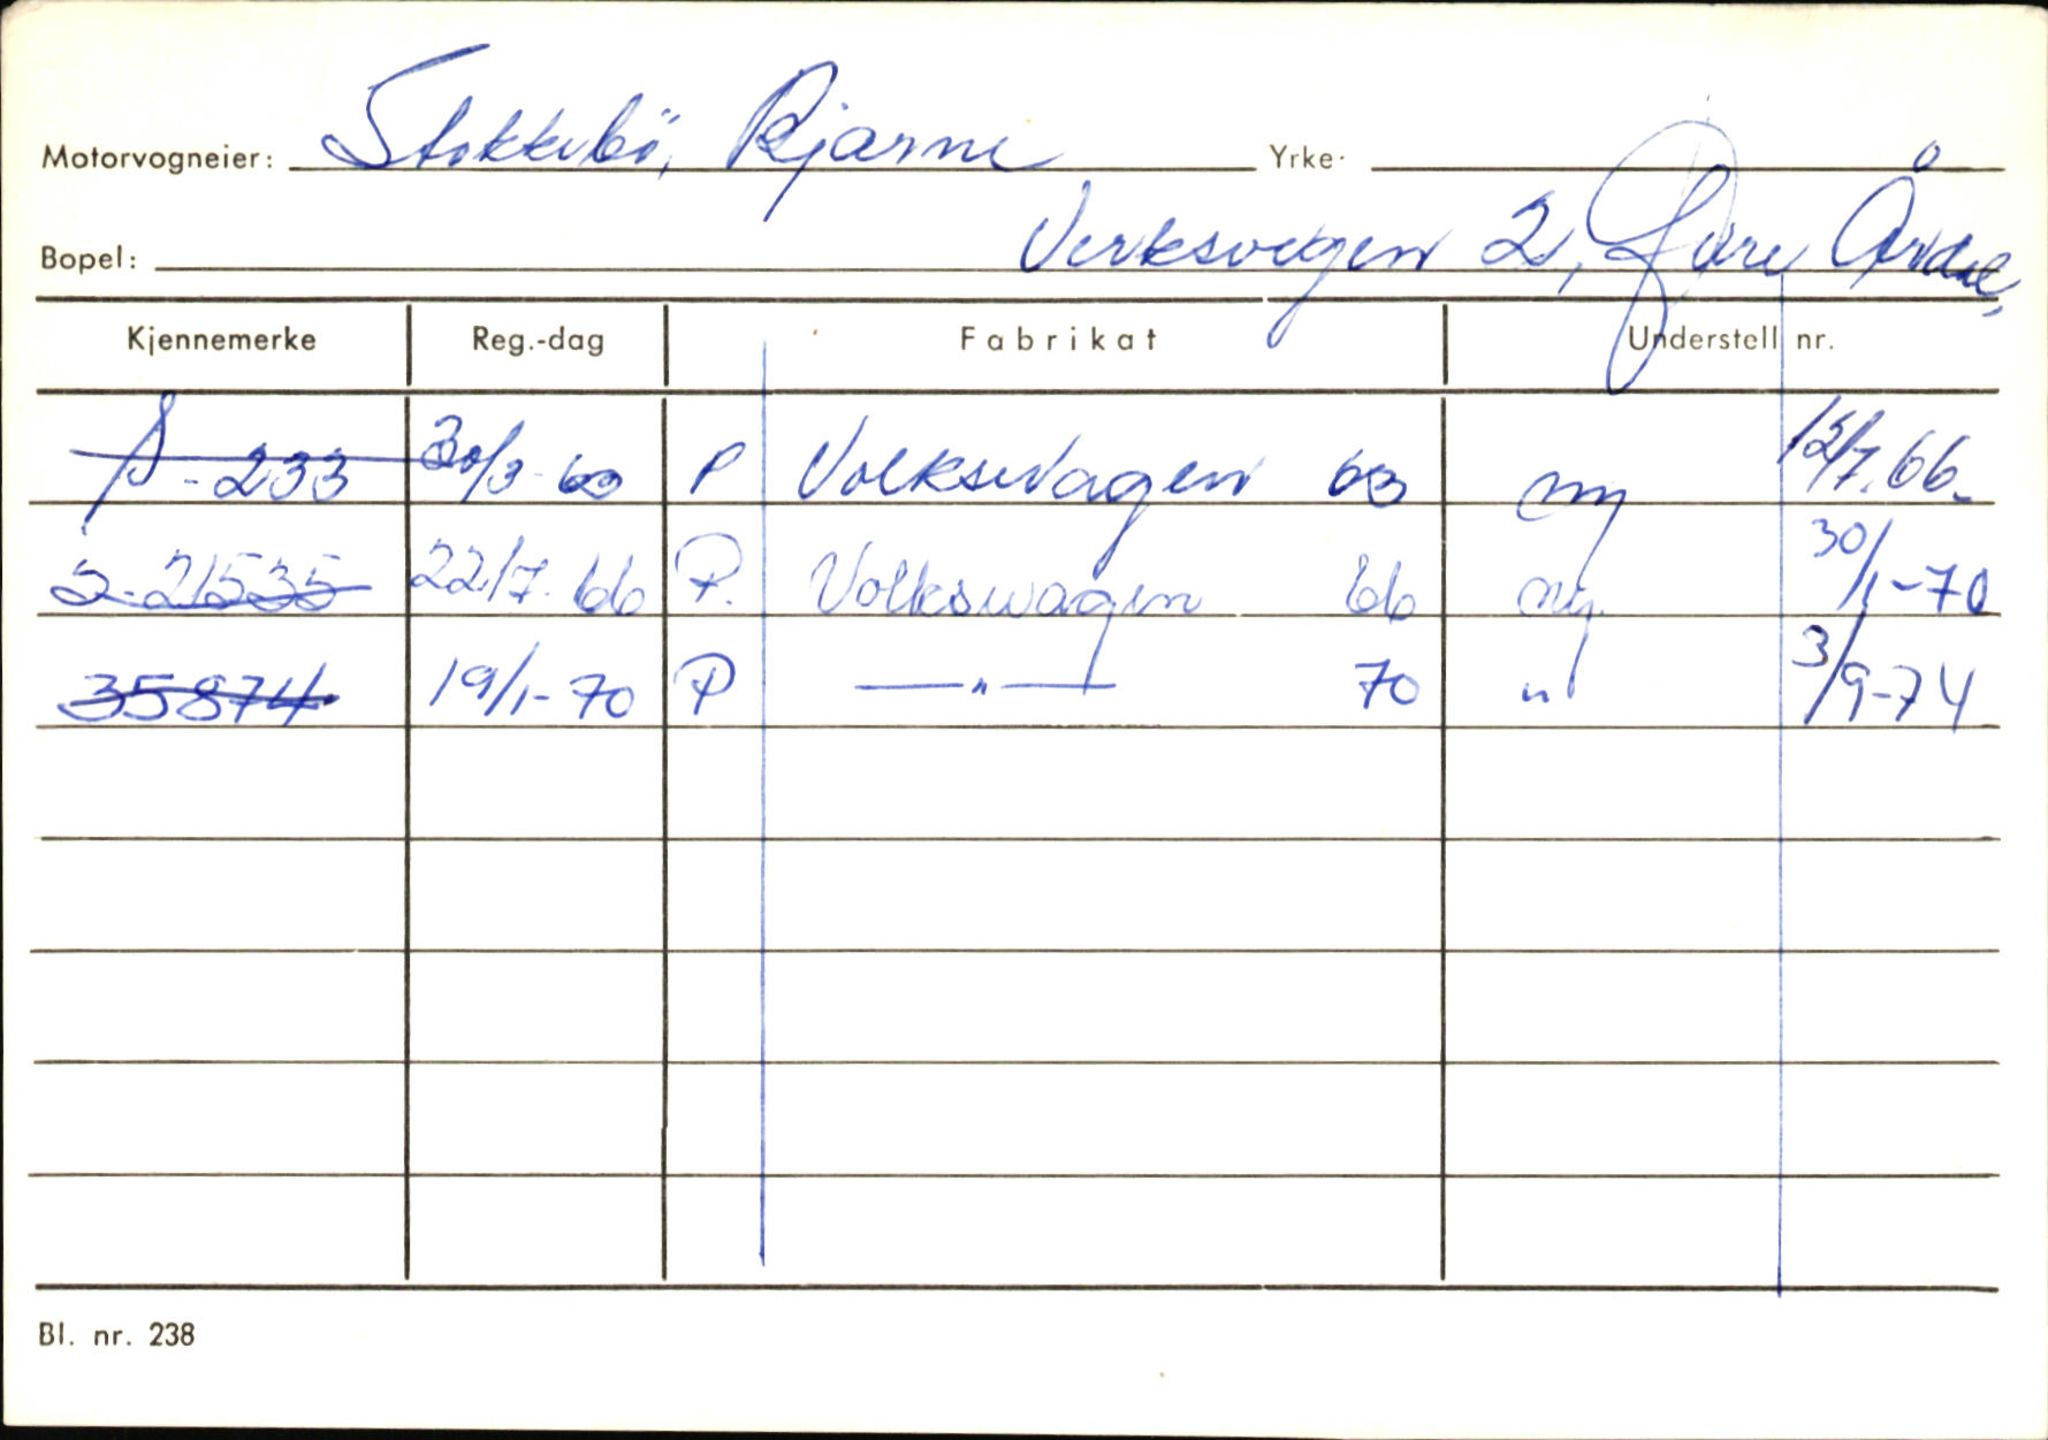 Motorvogneier: Stokkebö, Bjarne Yrke.
Bopel: Verksvegen 2, Øvre Årdal,
Kjennemerke Reg.-dag Fabrikat Understell nr.
S-233 30/3-63 P Volkswagen 63 ny 12/7.66.
S-21535 22/7.66 P. Volkswagen 66 ny. 30/1-70
35874 19/1-70 P —"— 70 " 3/9-74
Bl. nr. 238